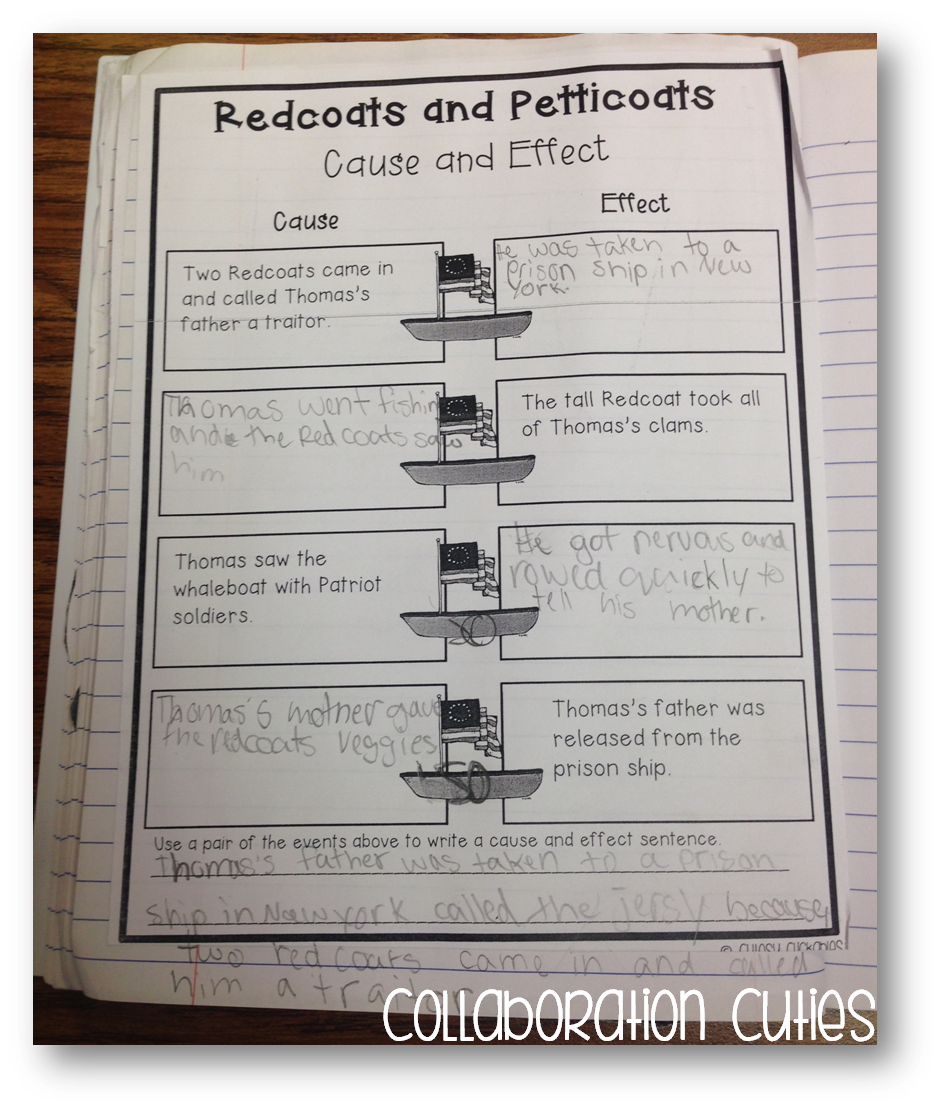 Redcoats and Petticoats
Cause and Effect
Cause
Effect
Two Redcoats came in
and called Thomas's
father a traitor.
He was taken to a
prison ship in New
York.
Thomas went fishing
and the Red coats saw
him
The tall Redcoat took all
of Thomas's clams.
Thomas saw the
whaleboat with Patriot
soldiers.
He got nervous and
rowed quickly to
tell his mother.
Thomas's mother gave
the redcoats veggies
Thomas's father was
released from the
prison ship.
Use a pair of the events above to write a cause and effect sentence.
Thomas's father was taken to a prison
ship in New york called the jersy because
two red coats came in and called
him a traitor
Collaboration Cuties